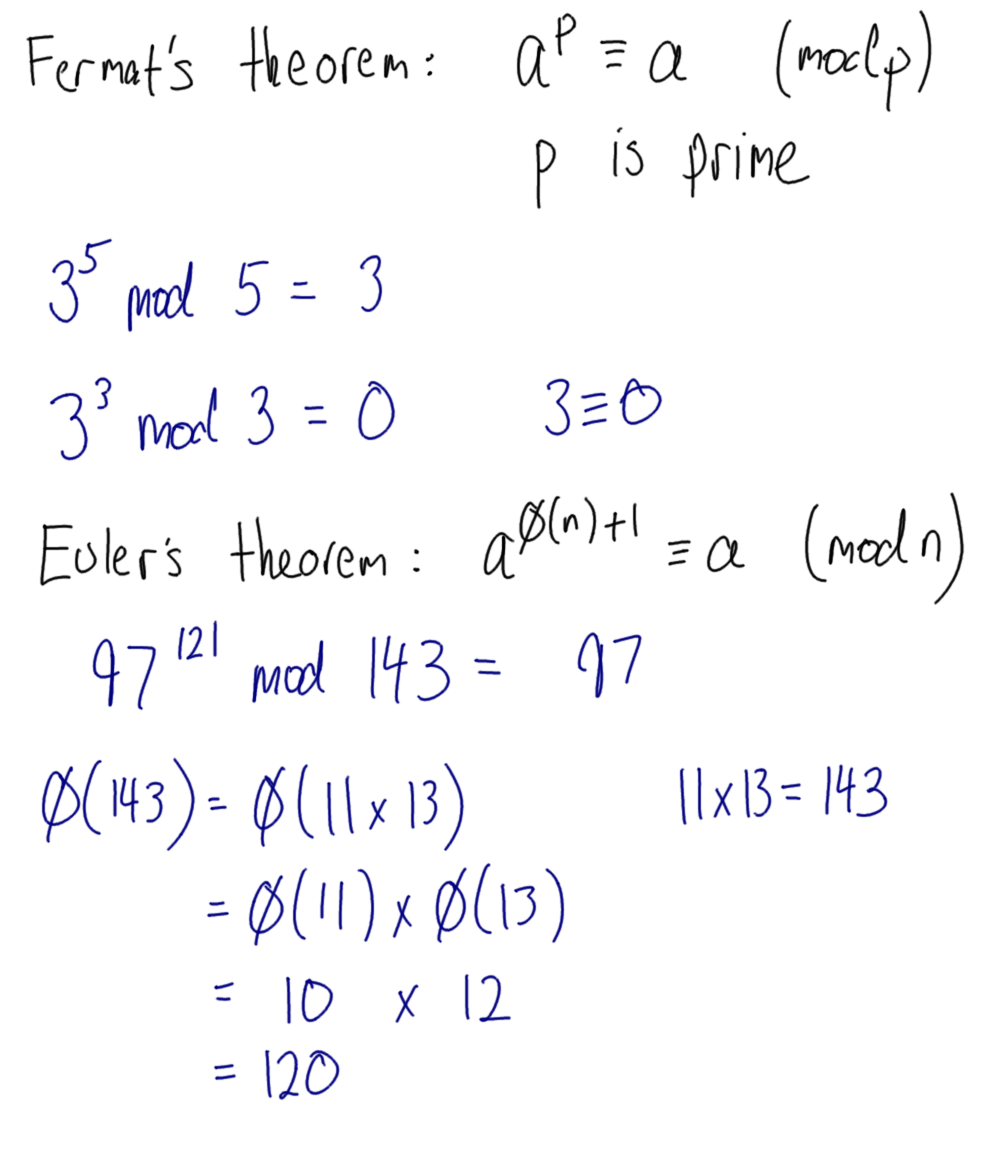 Fermat's theorem: a^p ≡ a (mod p)
p is prime
3^5 mod 5 = 3
3^3 mod 3 = 0 3≡0
Euler's theorem: a^(ø(n)+1) ≡ a (mod n)
97^121 mod 143 = 97
ø(143) = ø(11 x 13) 11x13 = 143
= ø(11) x ø(13)
= 10 x 12
= 120